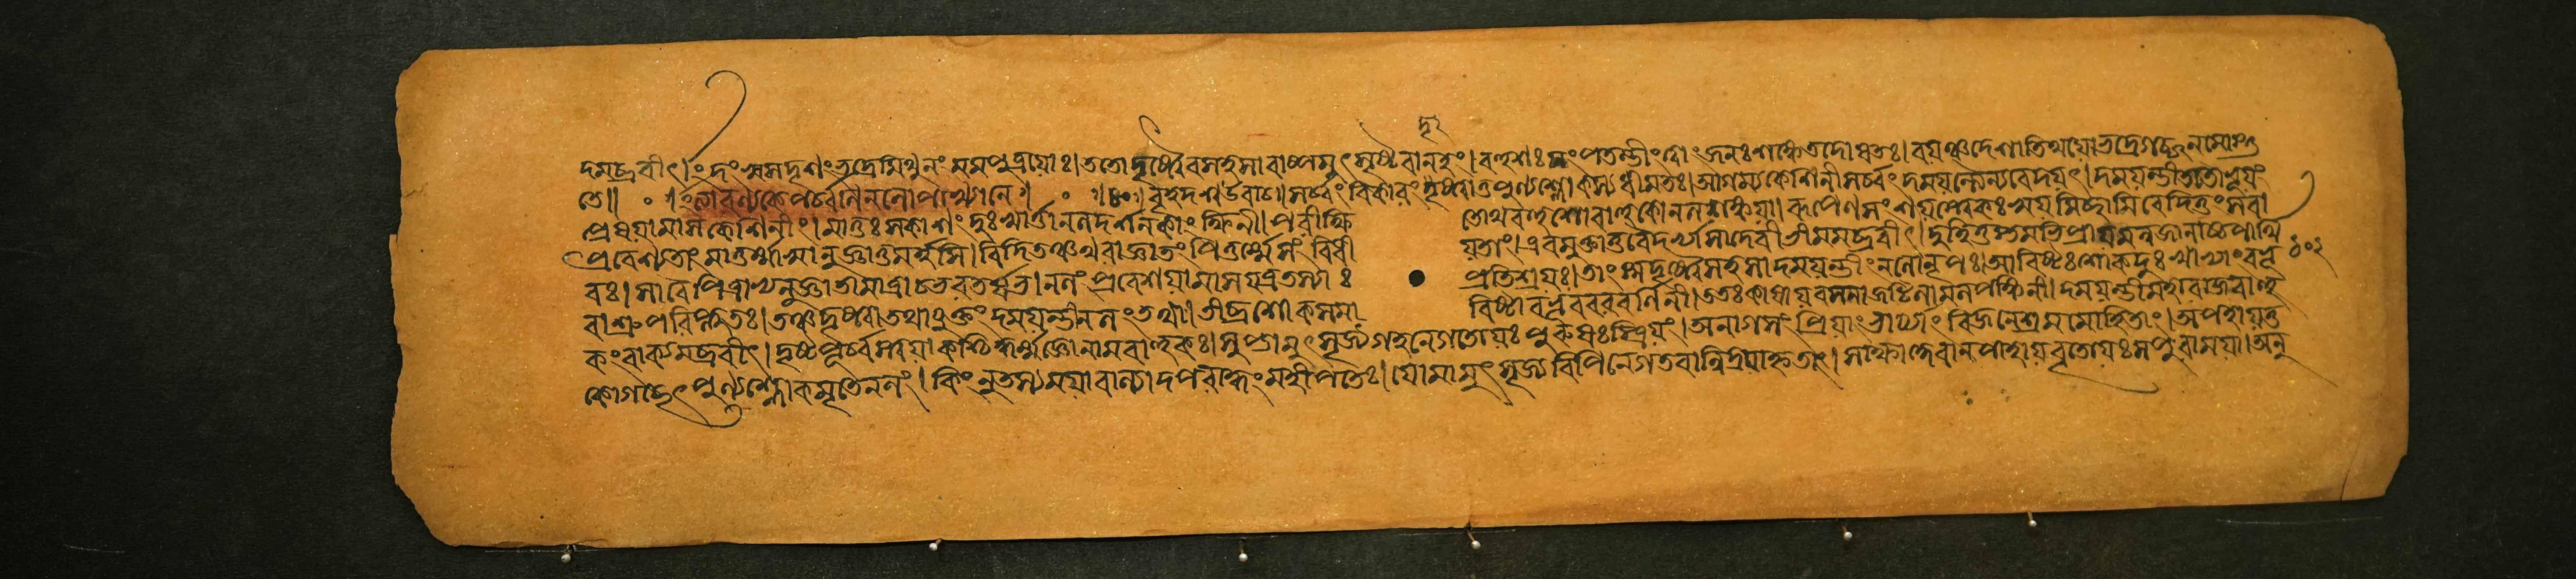 দৃ
দমব্রবীৎ। ইদং সুসদৃশং ভদ্রে মিথুনং মম পুত্রয়োঃ। ততো দৃষ্ট্বৈব সহসা বাষ্পমুৎসৃষ্টবানহং। বহুশঃ সংপতন্তীং ত্বাং জনঃ শঙ্কেত দোষতঃ। বয়ঞ্চ দেশাতিথয়ো ভদ্রে গচ্ছ নমোস্তু
তে॥ ০॥ আরণ্যকে পর্ব্বণি নলোপাখ্যানে॥ ০॥ বৃহদশ্ব উবাচ॥ সর্ব্বং বিকারং দৃষ্ট্বা তু পুণ্যশ্লোকস্য ধীমতঃ। আগম্য কেশিনী সর্ব্বং দময়ন্ত্যৈ ন্যবেদয়ৎ। দময়ন্তী ততো ভূয়ঃ
প্রেষয়ামাস কেশিনীং। মাতুঃ সকাশং দুঃখার্ত্তা নলদর্শনকাংক্ষিণী। পরীক্ষি তো মে বহুশো বাহুকো নলশঙ্কয়া। রূপে মে সংশয়স্ত্বেকঃ স্বয়মিচ্ছামি বেদিতুং। স বা
প্রবেশ্যতাং মাতর্মাম্বানুজ্ঞাতুমর্হসি। বিদিতং বাথবা জ্ঞাতং পিতুর্ম্মে সংবিধী য়তাং। এবমুক্তা তু বৈদর্ভ্যা সা দেবী ভীমমব্রবীৎ। দুহিতুস্তমভিপ্রায়মন্বজানাচ্চ পার্থি ১০২
বঃ। সা বৈ পিত্রাভ্যনুজ্ঞাতা মাত্রা চ ভরতর্ষভ। নলং প্রবেশয়ামাস যত্র তস্যাঃ প্রতিশ্রয়ঃ। তাং স্ম দৃষ্ট্বৈব সহসা দময়ন্তীং নলো নৃপঃ। আবিষ্টঃ শোকদুঃখাভ্যাং বভূ
বাশ্রুপরিপ্লুতঃ। তঞ্চ দৃষ্ট্বা তথাযুক্তং দময়ন্তী নলং তথা। তীব্রশোকসমা বিষ্টা বভূব বরবর্ণিনী। ততঃ কাষায়বসনা জটিলা মলপঙ্কিনী। দময়ন্তী মহারাজ বাহু
কং বাক্যমব্রবীৎ। দৃষ্টপূর্ব্বস্ত্বয়া কশ্চিদ্ধর্ম্মজ্ঞো নাম বাহুক। সুপ্তামুৎসৃজ্য গহনে গতো যঃ পুরুষঃ স্ত্রিয়ং। অনাগসং প্রিয়াং ভার্য্যাং বিজনে শ্রমমোহিতাং। অপহায় তু
কো গচ্ছেৎ পুণ্যশ্লোকমৃতে নলং। কিং নু তস্য ময়া বাল্যাদপরাদ্ধং মহীপতেঃ। যো মামুৎসৃজ্য বিপিনে গতবান্নিদ্রয়া হৃতাং। সাক্ষাদ্দেবানপাহায় বৃতো যঃ স পুরা ময়া। অনু